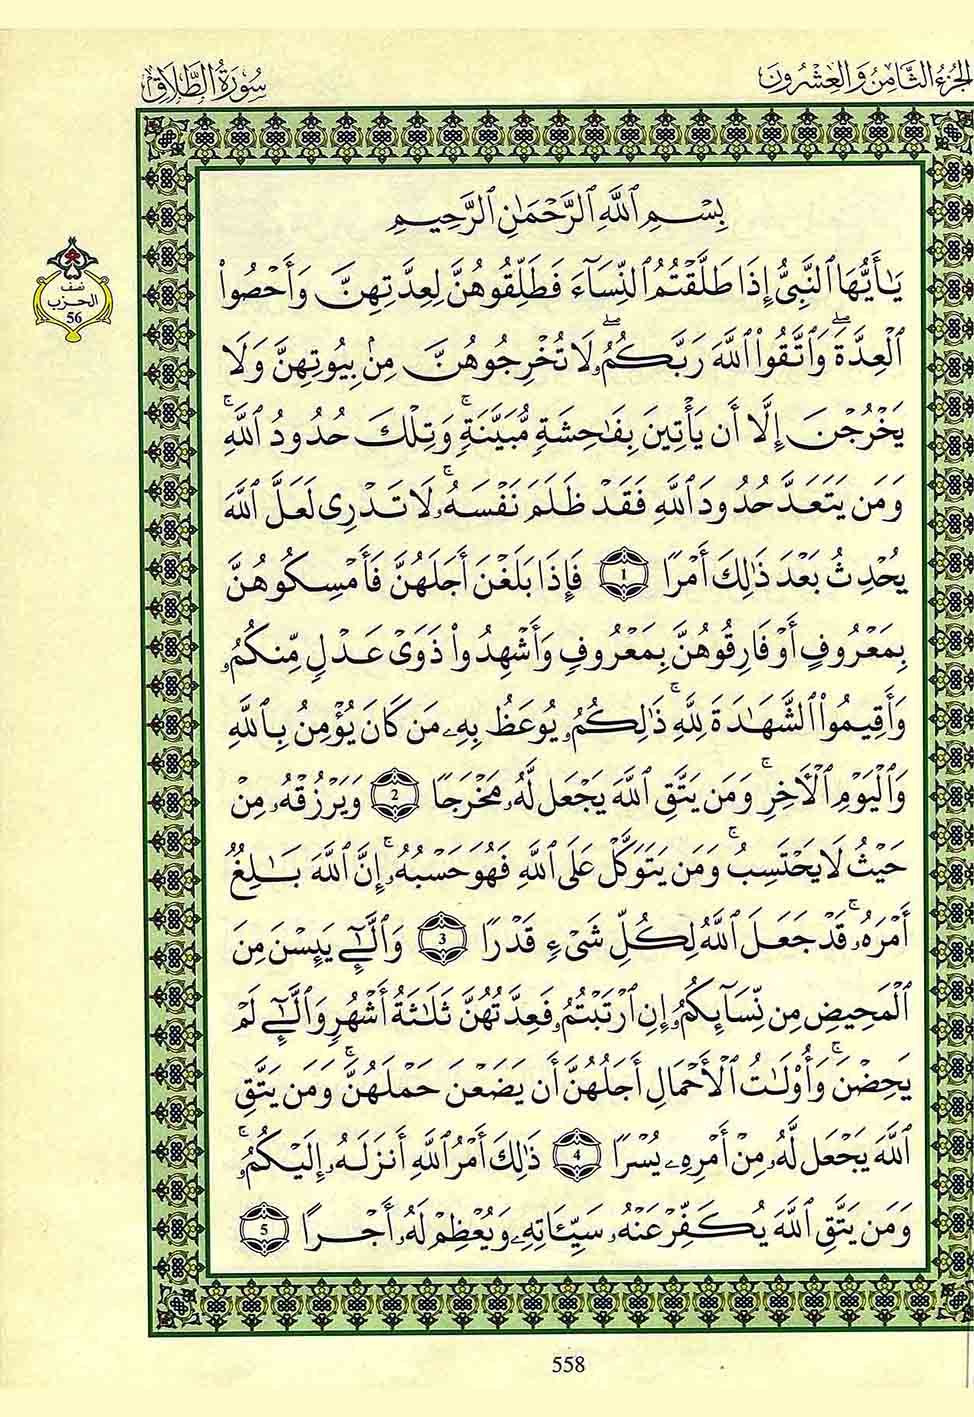 الجزء الثامن والعشرون
سورة الطلاق
بِسْمِ ٱللَّهِ ٱلرَّحْمَٰنِ ٱلرَّحِيمِ
يَٰٓأَيُّهَا ٱلنَّبِىُّ إِذَا طَلَّقْتُمُ ٱلنِّسَآءَ فَطَلِّقُوهُنَّ لِعِدَّتِهِنَّ وَأَحْصُوا۟
ٱلْعِدَّةَ ۖ وَٱتَّقُوا۟ ٱللَّهَ رَبَّكُمُۥ ۖ لَا تُخْرِجُوهُنَّ مِنۢ بِيُوتِهِنَّ وَلَا
يَخْرُجْنَ إِلَّا أَن يَأْتِينَ بِفَٰحِشَةٍ مُّبَيَّنَةٍ ۚ وَتِلْكَ حُدُودُ ٱللَّهِ ۚ
وَمَن يَتَعَدَّ حُدُودَ ٱللَّهِ فَقَدْ ظَلَمَ نَفْسَهُۥ ۚ لَا تَدْرِى لَعَلَّ ٱللَّهَ
يُحْدِثُ بَعْدَ ذَٰلِكَ أَمْرًا 1 فَإِذَا بَلَغْنَ أَجَلَهُنَّ فَأَمْسِكُوهُنَّ
بِمَعْرُوفٍ أَوْ فَارِقُوهُنَّ بِمَعْرُوفٍ وَأَشْهِدُوا۟ ذَوَىْ عَدْلٍ مِّنكُمُۥ
وَأَقِيمُوا۟ ٱلشَّهَٰدَةَ لِلَّهِ ۚ ذَٰلِكُمُۥ يُوعَظُ بِهِۦ مَن كَانَ يُؤْمِنُ بِٱللَّهِ
وَٱلْيَوْمِ ٱلْآخِرِ ۚ وَمَن يَتَّقِ ٱللَّهَ يَجْعَل لَّهُۥ مَخْرَجًا 2 وَيَرْزُقْهُۥ مِنْ
حَيْثُ لَا يَحْتَسِبُ ۚ وَمَن يَتَوَكَّلْ عَلَى ٱللَّهِ فَهُوَ حَسْبُهُۥ ۚ إِنَّ ٱللَّهَ بَٰلِغٌ
أَمْرَهُۥ ۚ قَدْ جَعَلَ ٱللَّهُ لِكُلِّ شَىْءٍ قَدْرًا 3 وَٱلَّٰٓـِٔى يَئِسْنَ مِنَ
ٱلْمَحِيضِ مِن نِّسَآئِكُمُۥ إِنِ ٱرْتَبْتُمُۥ فَعِدَّتُهُنَّ ثَلَٰثَةُ أَشْهُرٍ وَٱلَّٰٓـِٔى لَمْ
يَحِضْنَ ۚ وَأُو۟لَٰتُ ٱلْأَحْمَالِ أَجَلُهُنَّ أَن يَضَعْنَ حَمْلَهُنَّ ۚ وَمَن يَتَّقِ
ٱللَّهَ يَجْعَل لَّهُۥ مِنْ أَمْرِهِۦ يُسْرًا 4 ذَٰلِكَ أَمْرُ ٱللَّهِ أَنزَلَهُۥ إِلَيْكُمُۥ ۚ
وَمَن يَتَّقِ ٱللَّهَ يُكَفِّرْ عَنْهُۥ سَيِّـَٔاتِهِۦ وَيُعْظِمْ لَهُۥ أَجْرًا 5
نصف
الحزب
56
558